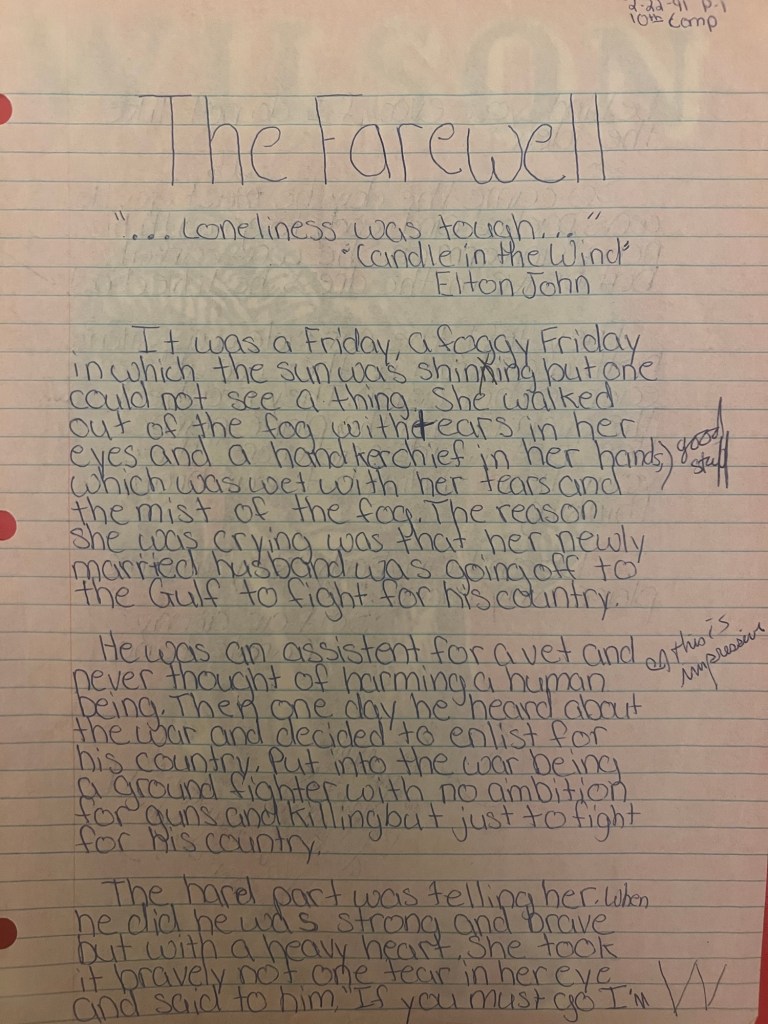 2-22-91 P-1
10th Comp
The Farewell
"... Loneliness was tough..."
"Candle in the Wind"
Elton John
It was a Friday, a foggy Friday
in which the sun was shinning but one
could not see a thing. She walked
out of the fog with tears in her
eyes and a handkerchief in her hands,) good
which was wet with her tears and stuff
the mist of the fog. The reason
she was crying was that her newly
married husband was going off to
the Gulf to fight for his country.
He was an assistent for a vet and this is
never thought of harming a human impressive
being. Then one day he heard about
the war and decided to enlist for
his country. Put into the war being
a ground fighter with no ambition
for guns and killing but just to fight
for his country.
The hard part was telling her. When
he did he was strong and brave
but with a heavy heart. She took
it bravely not one tear in her eye
and said to him, "If you must go I'm W